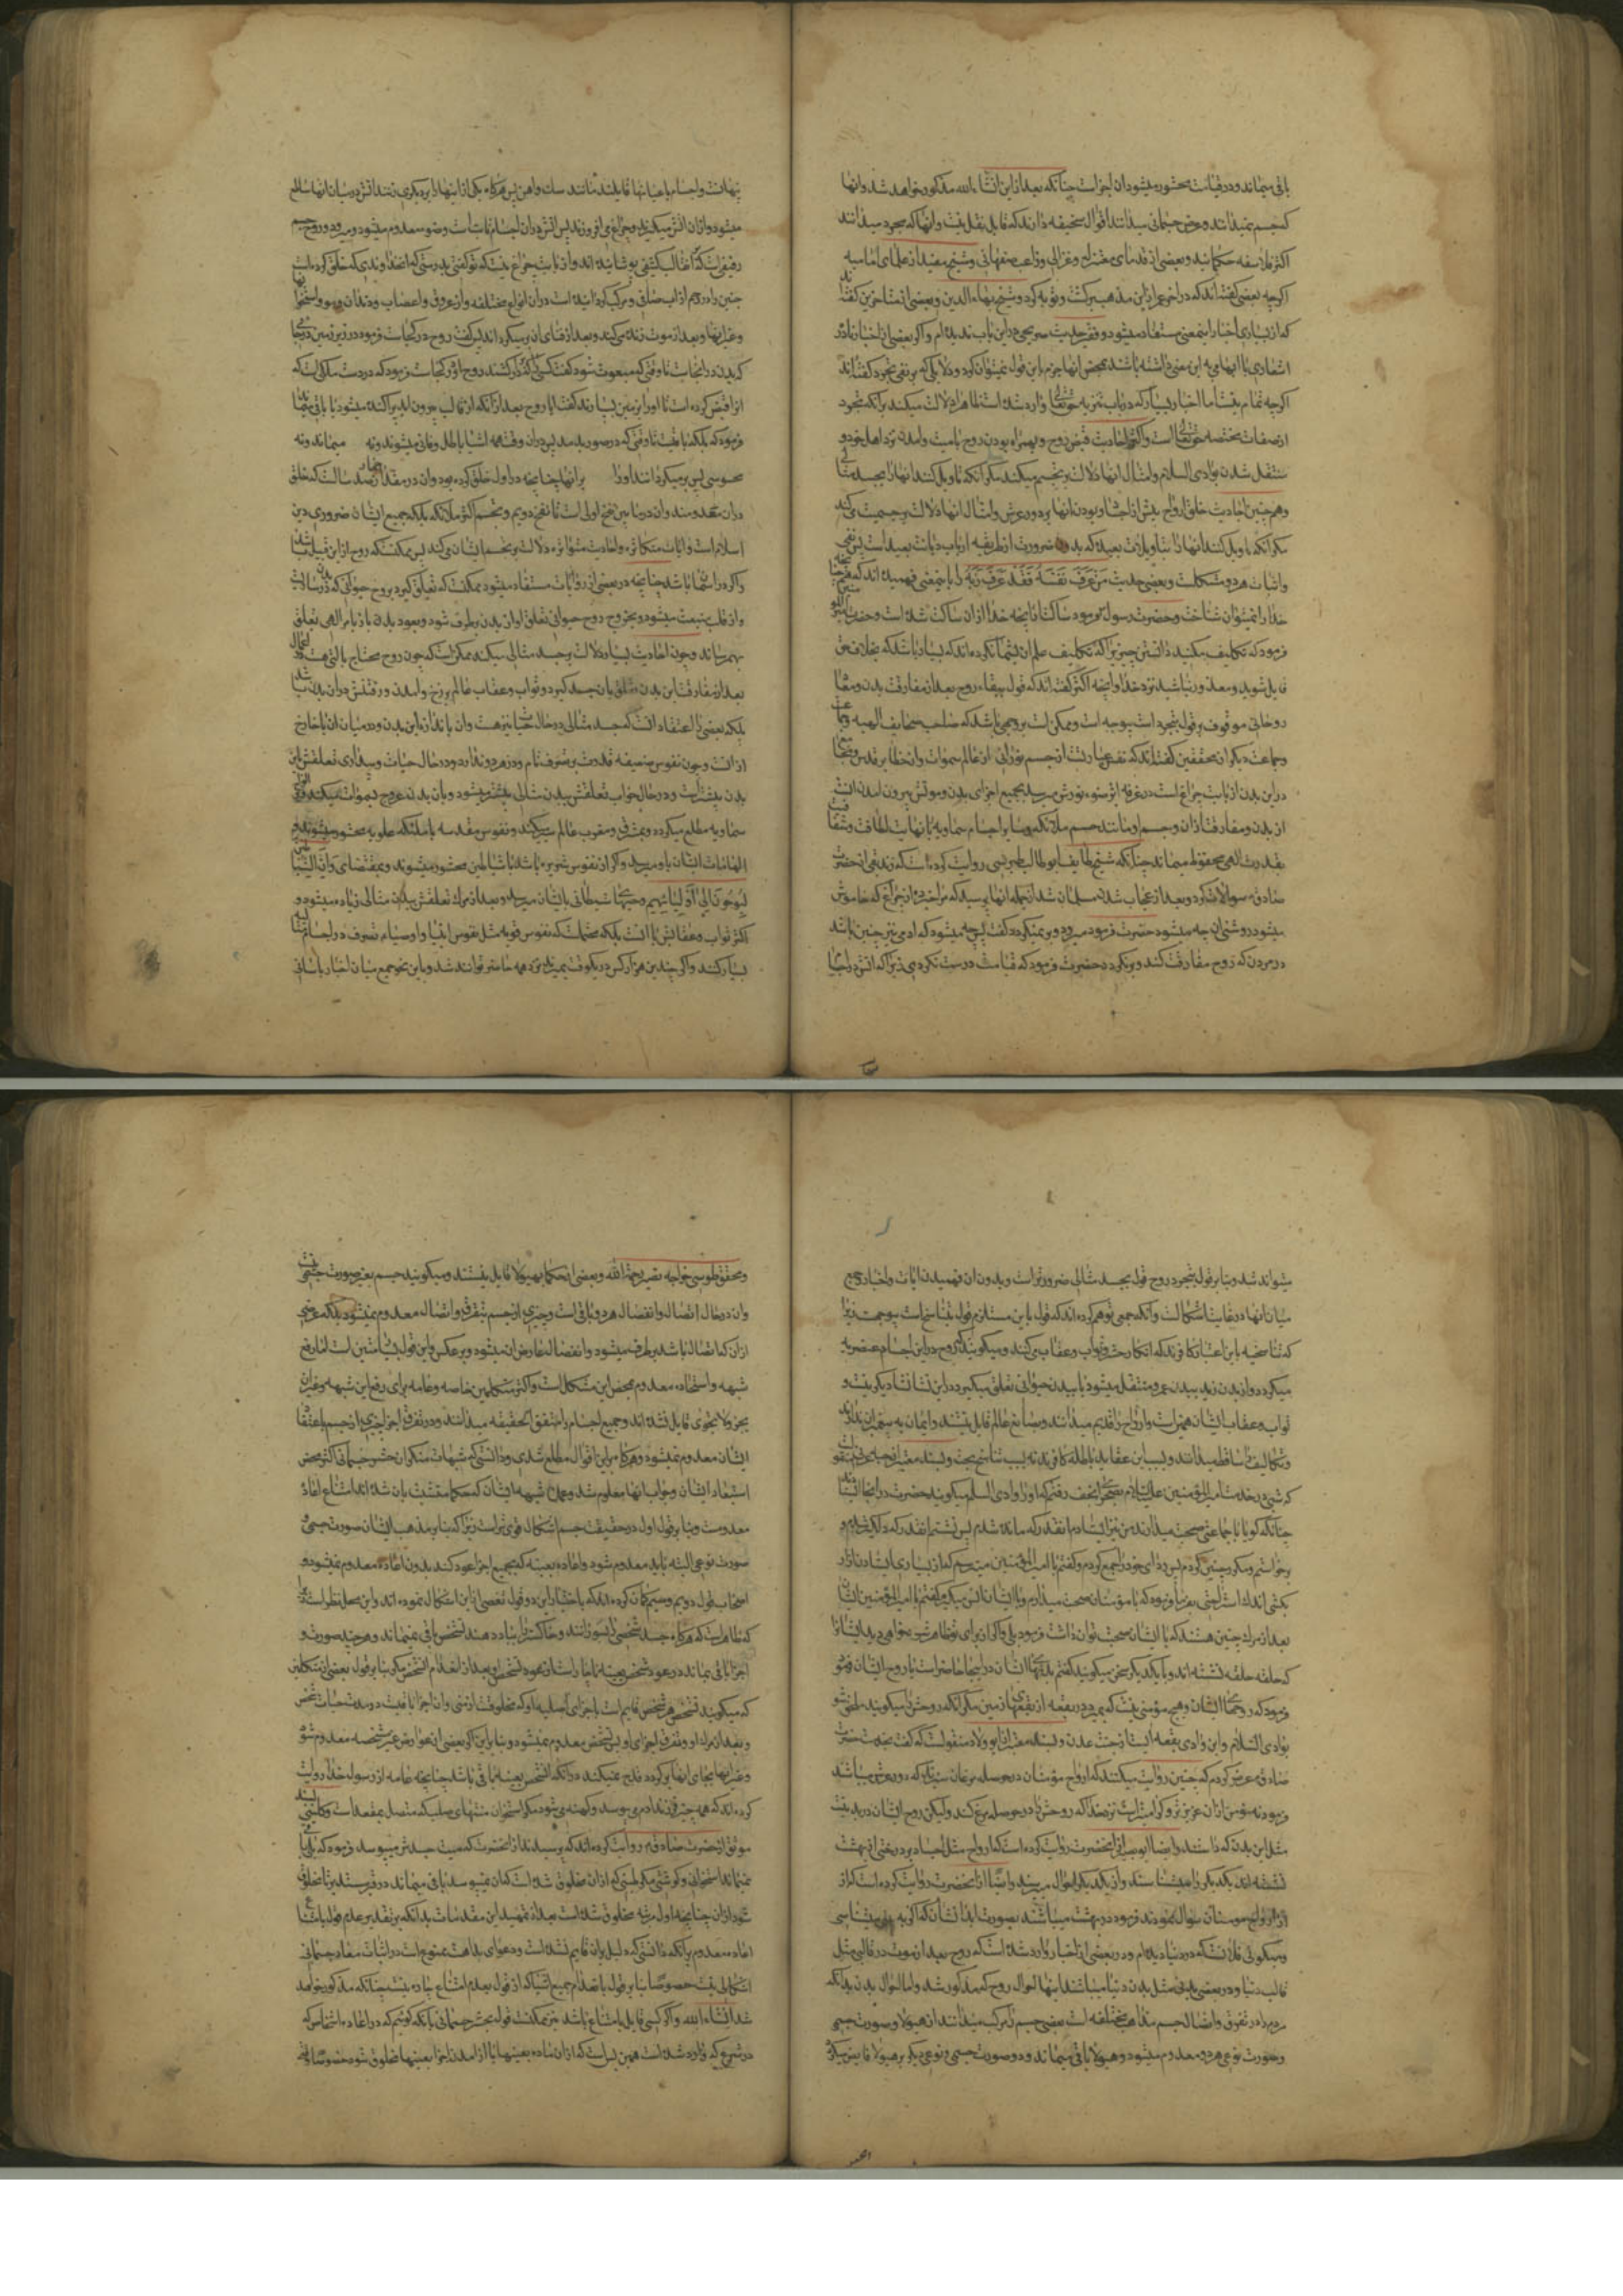 باقی میماند و در قیامت محشور میشود ان اجزاست چنانکه بعد از این انشاء الله مذکور خواهد شد و انها
که جسم نمیدانند و عرض جسمانی میدانند اقوال سخیفه دارند که قابل نقل نیست و انها که مجرد میدانند
اکثر فلاسفه حکمایند و بعضی از قدمای معتزله و غزالی و راغب اصفهانی و شیخ مفید از علمای امامیه
اکرچه بعضی کفته‌اند که در اخر عمر از این مذهب برکشت و توبه کرد و شیخ بهاء الدین و بعضی از متاخرین کفته
که از بسیاری اخبار اینمعنی مستفاد میشود و فقیر حدیث صریحی در این باب ندیده‌ام و اکر بعضی از اخبار نادر
اشعاری یا ابهامی به این معنی داشته باشد بمحض انها جزم باین قول نمیتوان کرد و دلایلی که بر نفی تجرد کفته‌اند
اکرچه تمام نیست اما اخبار بسیار که در باب تنزیه حق تعالی وارد شده است ظاهرا دلالت میکند بر انکه تجرد
از صفات مختصه حق تعالی است و اکثر احادیث قبض روح و همراه بودن روح با میت و امدن نزد اهل خود و
منتقل شدن بوادی السلام و امثال انها دلالت بر تجسم میکند مکر انکه تاویل کنند انها را بجسد مثالی
وهم‌چنین احادیث خلق ارواح پیش از اجساد و بودن انها بر دور عرش و امثال انها دلالت بر جسمیت میکند
مکر انکه تاویل کنند انها را بتاویلات بعیده که بدون ضرورت از طریقه ارباب دیانت بعید است پس نفی
و اثبات هر دو مشکلست و بعضی حدیث مَن عَرَفَ نَفسَهُ فَقَد عَرَفَ رَبَّه را باینمعنی فهمیده‌اند که
خدا را نمیتوان شناخت و حضرت رسول فرمود ساکت باشید از انچه خدا از ان ساکت شده است و حضرت
فرمود که تکلیف مکنید دانستن چیزی را که تکلیف علم ان بشما نکرده‌اند که بسیار باشد که بخلاف حق
قایل شوید و معذور نباشید نزد خدا و انچه اکثر کفته‌اند که قول ببقاء روح بعد از مفارقت بدن و معاد
روحانی موقوف بر قول بتجرد است بیوجه است و ممکن است بر وجهی باشد که صاحب صحایف الهیه
و جماعت دیکر از محققین کفته‌اند که نفس عبارتست از جسم نورانی از عالم سموات و انحطایر قدس
در این بدن از بابت چراغ است در غرفه اثر ضوء نورش میرسد بجمیع اجزای بدن و موتش بیرون امدن انست
از بدن و مفارقت از ان و جسم او مانند جسم ملائکه و سایر اجسام سماویه با نهایت لطافت و شفافیت
بقدرت الهی محفوظ میماند چنانکه شیخ طایفه ابوطالب طبرسی روایت کرده است که زندیقی از حضرت
صادق سوالات کرد و بعد از عجاب شدن مسلمان شد از جمله انها پرسید که مرا خبر ده از چراغ که خاموش
میشود روشنی ان چه میشود حضرت فرمود میرود و بر نمیکردد کفت پس چه میشود که ادمی نیز چنین باشد
در مردن که روح مفارقت کند و بر نکردد حضرت فرمود که قیاست درست نکردی زیرا که اتش در اجسام
پنهانست و اجسام باعیانها قایمند مانند سنک و اهن پس هرکاه یکی از اینها را بر دیکری زنند اتش در میان انها ساطع
میشود و از ان اتش میکیرند و چراغ می افروزند پس اتش در ان اجسام ثابت است و ضوء معدوم میشود و میرود و روح جسم
رقیقی است که از قالب کثیفی پوشانیده‌اند و از بابت چراغ نیست که تو کفتی بدرستی که انخداوندی که خلق کرده است
جنین را در رحم از اب صافی و مرکب کردانیده است در ان انواع مختلفه را از عروق و اعصاب و دندان و مو و استخوانها
و غیر اینها و بعد از موت زنده میکند و بعد از فنای ان بر میکرداند پس کفت روح در کجاست فرمود در زیر زمین در انجا
که بدن در انجاست تا وقتی که مبعوث شود کفت کسی را که بر دار کشند روح او در کجاست فرمود که در دست ملکی است که
انرا قبض کرده است تا او را بزمین بسپارند کفت ایا روح بعد از انکه از قالب بیرون امد پراکنده میشود یا باقی میماند
فرمود که بلکه باقیست تا وقتی که در صور بدمند پس در ان وقت همه اشیا باطل و فانی میشوند و نه میماند و نه
محسوسی پس بر میکردانند او را بر انها چنانچه در اول خلق کرده بود و ان در مقدار چهارصد سالست که خلق
در ان معدومند و ان در ما بین نفخ اولی است تا نفخ دویم و تجسم اکثر ملائکه بلکه جمیع ایشان ضروری دین
اسلام است و ایات متکاثره و احادیث متواتره دلالت بر تجسم ایشان میکند پس ممکنست که روح از این قبیل باشد
و اکر در اسمها باشد چنانچه در بعضی از روایات مستفاد میشود ممکنست که تعلق کیرد بروح حیوانی که در سراسر بدن
و از قلب منبعث میشود و بخروج روح حیوانی تعلق او از بدن برطرف شود و بعود بدن باز بامر الهی تعلق
بهم رساند و چون احادیث بسیار دلالت بر جسد مثالی میکند ممکن است که چون روح محتاج بالتی هست در اعمال
بعد از مفارقت این بدن متعلق بان جسد کیرد و ثواب و عقاب عالم برزخ و امدن و رفتنش در ان بدن باشد
بلکه بعضی را اعتقاد انست که جسد مثالی در حال حیات نیز هست و ان یا ندانه این بدن و در میان ان یا خارج
از انست و چون نفوس ضعیفه قدرت بر تصرف تام در هر دو ندارد و در حال حیات و بیداری تعلقش باین
بدن بیشتر است و در حال خواب تعلقش ببدن مثالی بیشتر میشود و بان بدن عروج بسموات میکند و بر الواح
سماویه مطلع میکردد و بمشرق و مغرب عالم سیر میکند و نفوس مقدسه با ملائکه علویه محشور میشوند و
الهامات ایشان باو میرسد و اکر از نفوس شریره باشد با شیاطین محشور میشوند و بمقتضای وَاِنَّ الشَّیَاطِینَ
لَیُوحُونَ اِلی اَولِیَائِهِم وحیهای شیطانی بایشان میرسد و بعد از مرک تعلقش ببدن مثالی زیاده میشود و
اکثر ثواب و عقابش با انست بلکه محتملست که نفوس قویه مثل نفوس انبیا و اوصیاء تصرف در اجساد مثالی
بسیار کنند و اکر چندین هزار کس در یکوقت بمیرند نزد همه حاضر توانند شد و باین نحو جمع میان اخبار باسانی
میتواند شد و بنا بر قول بتجرد روح قول بجسد مثالی ضرورتر است و بدون ان فهمیدن ایات و اخبار و جمع
میان انها در غایت اشکالست و انکه جمعی توهم کرده‌اند که قول باین مستلزم قول بتناسخ است بیوجهست زیرا
که تناسخیه باین اعتبار کافرند که انکار حشر و ثواب و عقاب میکنند و میکویند که روح در این اجسام عنصریه
میکردد و از بدن زید ببدن عمرو منتقل میشود یا ببدن حیوانی تعلق میکیرد در این نشاه و نشاه دیکر نیست و
ثواب و عقاب ایشان همین است و ارواح را قدیم میدانند و بصانع عالم قایل نیستند و ایمان به پیغمبران ندارند
و تکالیف را ساقط میدانند و بسبب این عقاید باطله کافرند نه بسبب تناسخ بحت و بسند معتبر از حبه عرنی منقولست
که شبی در خدمت امیر المؤمنین علیه السلام بصحرای نجف رفتم که او را وادی السلام میکویند حضرت در انجا ایستاد
چنانکه کویا با جماعتی صحبت میدارند من نیز ایستادم انقدر که مانده شدم پس نشستم انقدر که دلتنک شدم و
برخواستم و مکرر چنین کردم پس ردای خود را جمع کردم و کفتم یا امیر المؤمنین میترسم که از بسیاری ایستادن ازار
بکشی اندک استراحتی بفرما فرمود که با مؤمنان صحبت میدارم و با ایشان انس میکیرم کفتم یا امیر المؤمنین ایشان
بعد از مرک چنین هستند که با ایشان صحبت توان داشت فرمود بلی و اکر از برای تو ظاهر شود خواهی دید ایشان را
که حلقه حلقه نشسته‌اند و با یکدیکر سخن میکویند کفتم بدنهای ایشان در اینجا حاضر است یا روح ایشان فرمود
فرمود که روحهای ایشان و هیچ مؤمنی نیست که بمیرد در بقعه از بقعهای زمین مکر انکه روحش را میکویند ملحق شو
بوادی السلام و این وادی بقعه ایست از جنت عدن و بسند معتبر از ابو ولاد منقولست که کفت بخدمت حضرت
صادق عرض کردم که چنین روایت میکنند که ارواح مؤمنان در حوصله مرغان سبزند که دور عرش میباشد
فرمود نه مؤمن از ان عزیزتر و کرامیتر است نزد خدا که روحش را در حوصله مرغ کند ولیکن روح ایشان در بدنیست
مثل این بدن که داشتند و ایضا ابوبصیر از انحضرت روایت کرده است که ارواح مثل اجساد بر درختی از بهشت
نشسته‌اند یکدیکر را میشناسند و از یکدیکر احوال میپرسند و ایضا از انحضرت روایت کرده است که از
از ارواح مومنان سوال نمودند فرمود در بهشت میباشند بصورت ابدانشان که اکر به بینی میشناسی
و میکوئی فلانست که در دنیا دیده‌ام و در بعضی از اخبار وارد شده است که روح بعد از موت در قالبی مثل
قالب دنیا و در بعضی بدنی مثل بدن دنیا میباشند اینها احوال روح که مذکور شد و اما احوال بدن بدانکه
مردم را در تفرق و اتصال جسم مذاهب مختلفه است بعضی جسم را مرکب میدانند از هیولا و صورت جسمی
و صورت نوعی هر دو معدوم میشود و هیولا باقی میماند و دو صورت جسمی و نوعی دیکر بر هیولا فایض میکردد
و محقق طوسی خواجه نصیر رحمه الله و بعضی از حکما بهیولا قایل نیستند و میکویند جسم بغیر صورت جسمی نیست
و ان در حال اتصال و انفصال هر دو باقی است و چیزی از جسم بتفرق و اتصال معدوم نمیشود بلکه عرضی
از ان که اتصال باشد برطرف میشود و انفصال عارض ان میشود و بر عکس و این قول بسیار متین است اما رفع
شبهه و استحاله معدوم بمحض این مشکل است و اکثر متکلمین خاصه و عامه برای رفع این شبهه و غیر ان
بجزو لا یتجزی قایل شده‌اند و جمیع اجسام را متفق الحقیقه میدانند و در تفرق اجزا چیزی از جسم باعتقاد
ایشان معدوم نمیشود و هرکاه بر این اقوال مطلع شدی و دانستی که شبهات منکران حشر جسمانی اکثر محض
استبعاد ایشان و جواب انها معلوم شد و عمده شبهه ایشان که حکما متشبث بان شده‌اند امتناع اعاده
معدومست و بنا بر قول اول در حقیقت جسم اشکال قوی تر است زیرا که بنا بر مذهب ایشان صورت جسمی و
صورت نوعی البته باید معدوم شود و اعاده بعینه که بجمیع اجزا عود کند بدون اعاده معدوم نمیشود و
اصحاب قول دویم و سیم کمان کرده‌اند که باختیار این دو قول تفصی از این اشکال نموده‌اند و این محل نظر است زیرا
که ظاهر است که هرکاه جسد شخصی را بسوزانند و خاکسترش را بباد دهند تشخص باقی نمیماند و هرچند صورت و
اجزا باقی بماند در عود شخص بعینه ناچار است از عود تشخص او بعد از انعدام تشخص مکر بنا بر قول بعضی از متکلمین
که میکویند تشخص هر شخص قایم است باجزای اصلیه او که مخلوقست از منی و ان اجزا باقیست در مدت حیات شخص
و بعد از مرک او و تفرق اجزای او پس تشخص معدوم نمیشود و بنا بر این اکر بعضی از عوارض غیر مشخصه معدوم شود
و غیر انها بجای انها بر کردد قدح نمیکند در انکه انشخص بعینه باقی باشد چنانچه عامه از رسول خدا روایت
کرده‌اند که همه چیز فرزند ادم میپوسد و کهنه می‌شود مکر استخوان منتهای صلب که متصل بمقعد است و کلینی بسند
موثق از حضرت صادق روایت کرده‌اند که پرسیدند از انحضرت که میت جسدش میپوسد فرمود که بلی باقی
نمیماند استخوانی و کوشتی مکر طینتی که از ان مخلوق شده است که ان نمیپوسد باقی میماند در قبر مستدیر تا مخلوق
شود از ان چنانچه اول مرتبه مخلوق شده است بعد از تمهید این مقدمات بدانکه بر تقدیر عدم قول بامتناع
اعاده معدوم بر انکه دانستی که دلیل بر ان قایم نشده است و دعوای بداهت ممنوع است در اثبات معاد جسمانی
اشکالی نیست خصوصا بنا بر قول بانعدام جمیع اشیا که از قول بعدم امتناع چاره نیست چنانکه مذکور خواهد
شد انشاء الله و اکر کسی قایل بامتناع باشد نیز ممکنست قول بحشر جسمانی بانکه کوئیم که در اعاده اشخاص که
در شرع که وارد شده است همین بس است که از ان ماده بعینها یا از امدن اجزا بعینها مخلوق شود خصوصا وقتی